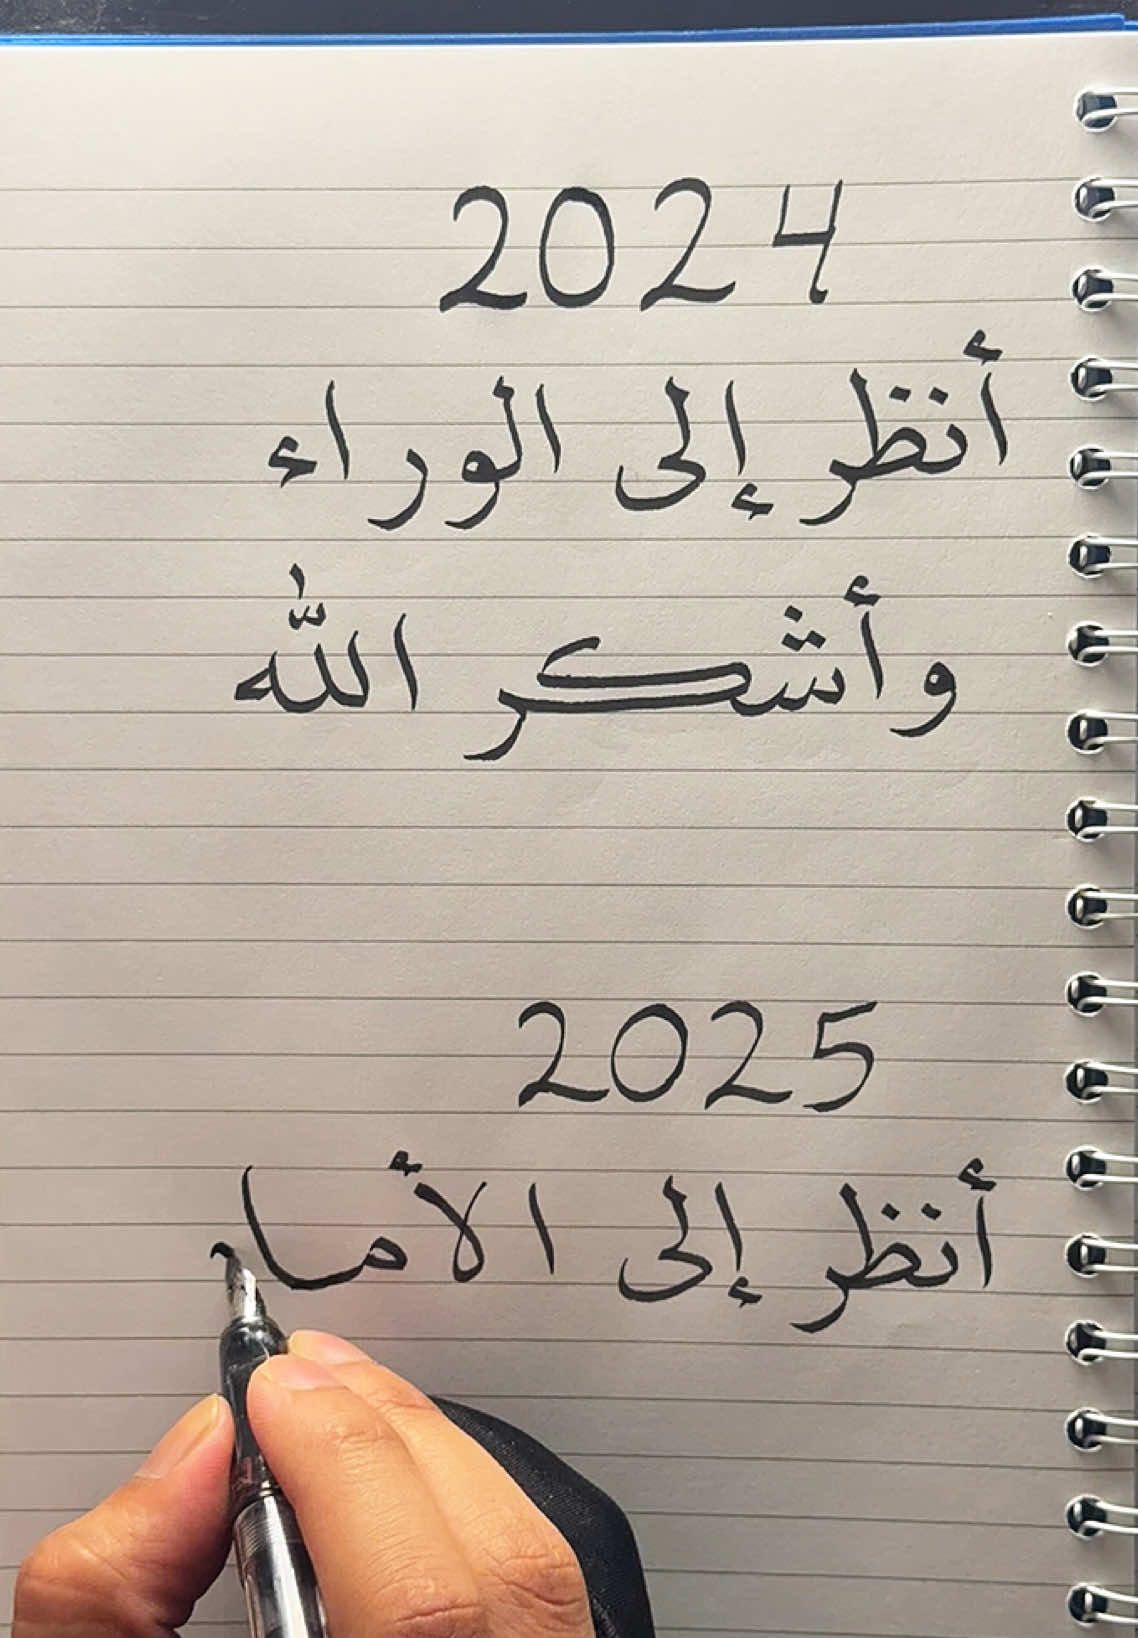 2024
أنظر إلى الوراء
وأشكر الله
2025
أنظر إلى الأمام